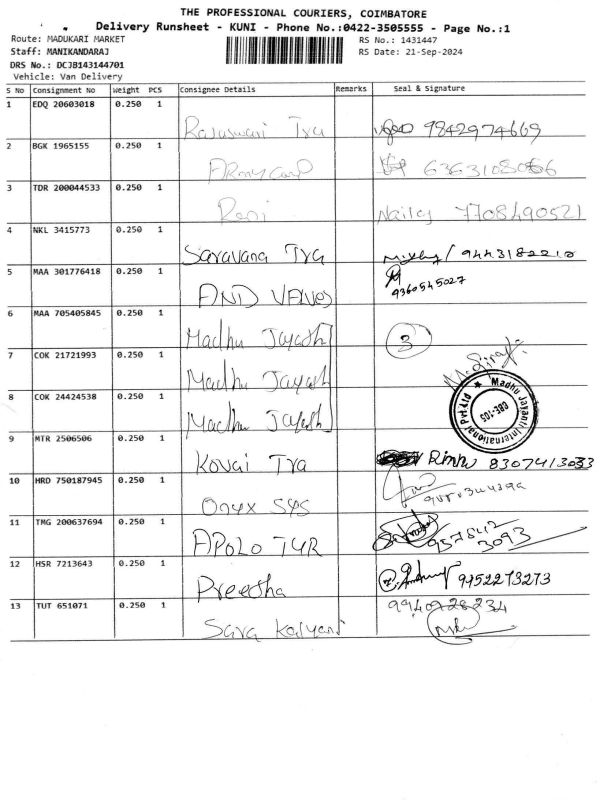 THE PROFESSIONAL COURIERS, COIMBATORE
Delivery Runsheet - KUNI - Phone No.:0422-3505555 - Page No.:1
Route: MADUKARI MARKET
RS No.: 1431447
Staff: MANIKANDARAJ
RS Date: 21-Sep-2024
DRS No.: DCJB143144701
Vehicle: Van Delivery
S No Consignment No Weight PCS Consignee Details Remarks Seal & Signature
1 EDQ 20603018 0.250 1
Rajuswari Tra 9842974669
2 BGK 1965155 0.250 1
ARmy Camp
3 TDR 200044533 0.250 1
Reni 7708490521
4 NKL 3415773 0.250 1
Saravana Tra 9443182210
5 MAA 301776418 0.250 1
AND VALVES 9360545027
6 MAA 705405845 0.250 1
Madhu Jayanth 3
7 COK 21721993 0.250 1
Madhu Jayanth
8 COK 24424538 0.250 1
Madhu Jayanth
Madhu Jayanti International Pvt Ltd
CBE-105
9 MTR 2506506 0.250 1
Kovai Tra Rinku 8307413033
10 HRD 750187945 0.250 1
Onyx SYS
11 TMG 200637694 0.250 1
APOLO TYR 957542
3093
12 HSR 7213643 0.250 1
Preetha 9152273273
13 TUT 651071 0.250 1
9940928234
Sara Kalyani